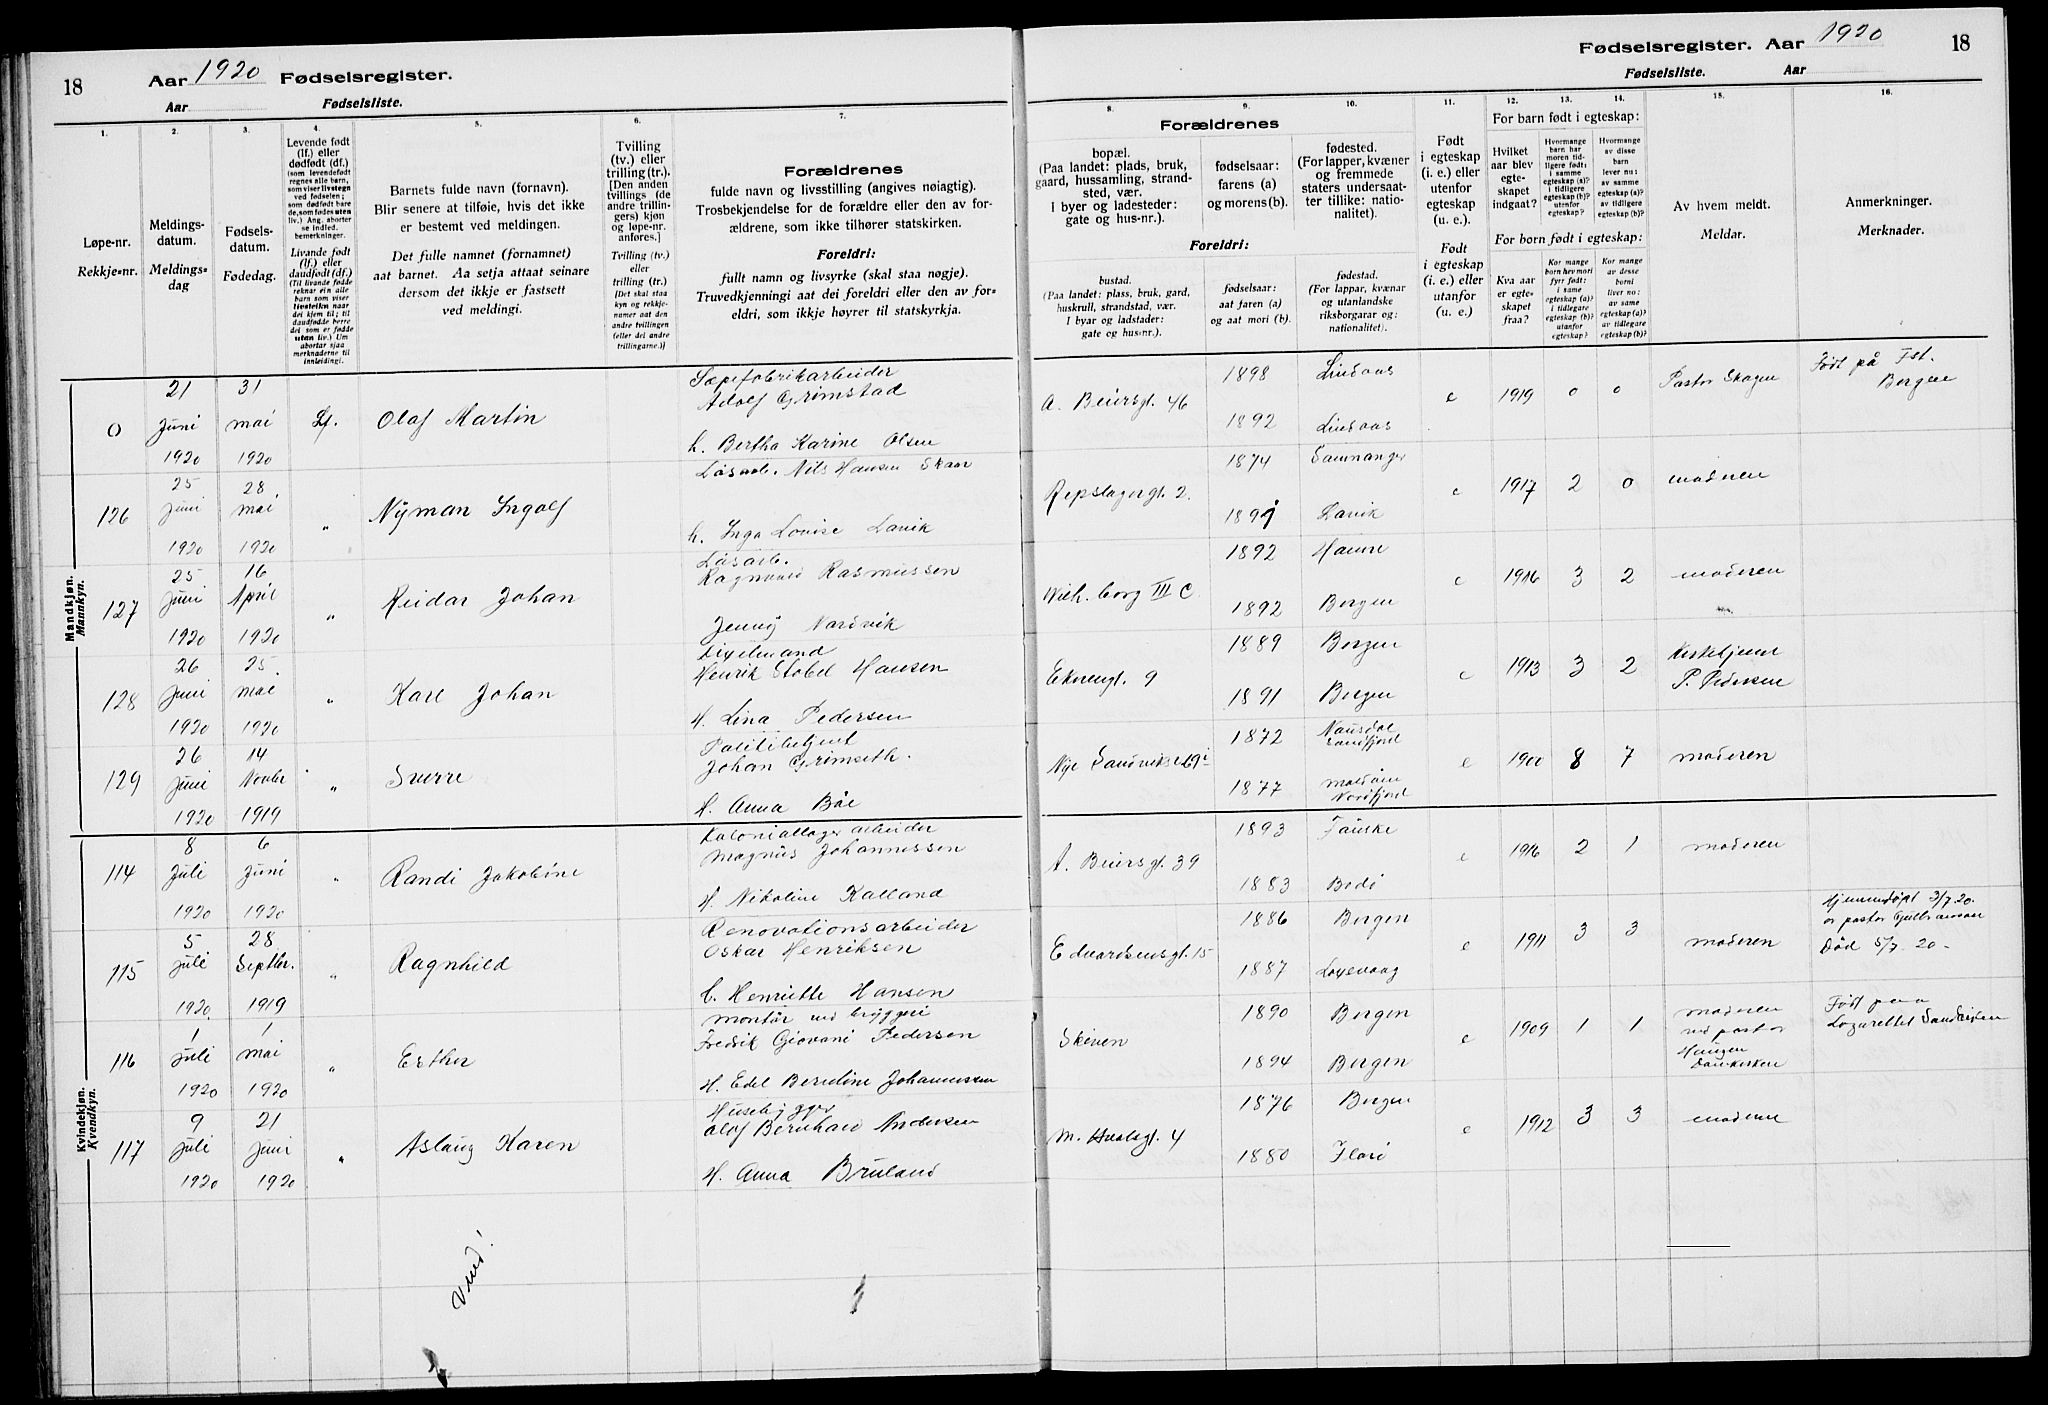 18 Aar 1920 Fødselsregister.
Aar Fødselsliste.
Fødselsregister. Aar 1920 18
Fødselsliste. Aar
1. 2. 3. 4. 5. 6. 7.
Løpe-nr.
Rekkje-nr.
Meldings-
datum.
Meldings-
dag
Fødsels-
datum.
Fødedag.
Levende født
(lf.) eller
dødfødt (df.)
(som levendefødt
regnes alle barn,
som viser livstegn
ved fødselen;
som dødfødt bare
de, som fødes uten
liv.) Ang. aborter
se indled.
bemerkninger.
Livande født
(lf.) eller
daudfødt (df.)
(Til livande fødde
reknar ein alle
born som viser
livsteikn naar
dei kjem til; til
daudfødde berre
dei som er fødde
utan liv.) Um
abortar sjaa
merknaderne til
innleidingi.
Barnets fulde navn (fornavn).
Blir senere at tilføie, hvis det ikke
er bestemt ved meldingen.
Det fulle namnet (fornamnet)
aat barnet. Aa setja attaat seinare
dersom det ikkje er fastsett
ved meldingi.
Tvilling
(tv.) eller
trilling (tr.).
[Den anden
tvillings (de
andre trillin-
gers) kjøn
og løpe-nr.
anføres.]
Tvilling (tv.)
eller
trilling (tr.)
[Det skal staa
kyn og rekkje-
numer aat den
andre tvillingen
(eller dei andre
trillingarne.)]
Forældrenes
fulde navn og livsstilling (angives nøiagtig).
Trosbekjendelse for de forældre eller den av for-
ældrene, som ikke tilhører statskirken.
Foreldri:
fullt namn og livsyrke (skal staa nøgje).
Truvedkjenningi aat dei foreldri eller den av for-
eldri, som ikkje høyrer til statskyrkja.
8. 9. 10. 11. 12. 13. 14. 15. 16.
Forældrenes
bopæl.
(Paa landet: plads, bruk,
gaard, hussamling, strand-
sted, vær.
I byer og ladesteder:
gate og hus-nr.).
fødselsaar:
farens (a)
og morens (b).
fødested.
(For lapper, kvæner
og fremmede
staters undersaat-
ter tillike: natio-
nalitet).
Foreldri:
bustad.
(Paa landet: plass, bruk, gard,
huskrull, strandstad, vær.
I byar og ladstader:
gate og hus-nr.).
fødselsaar:
aat faren (a)
og aat mori (b).
fødestad.
(For lappar, kvænar
og utanlandske
riksborgarar og:
nationalitet).
Født
i egteskap
(i. e.) eller
utenfor
egteskap
(u. e.).
Født
i egteskap
(i. e.) eller
utanfor
egteskap
(u. e.)
For barn født i egteskap:
Hvilket
aar blev
egte-
skapet
indgaat?
Hvormange
barn har
moren tid-
ligere født:
i samme
egteskap (a)?
i tidligere
egteskap (b)?
utenfor
egteskap?
Hvormange
av disse
barn
lever nu:
av samme
egteskap (a)?
av tidligere
egteskap (b)?
For born født i egteskap:
Kva aar
er egte-
skapet
fraa?
Kor mange
born hev mori
fyrr født:
i same
egteskap (a)?
i tidlegare
egteskap (b)?
utanfor
egteskap?
Kor mange
av desse
borni
liver no:
av same
egteskap (a)?
av tidlegare
egteskap (b)?
Av hvem meldt.
Meldar.
Anmerkninger.
Merknader.
Mandkjøn.
Mannkyn.
0 21 Juni 1920 31 mai 1920 Lf. Olaf Martin
Sæpefabrikarbeider
Adolf Grimstad
h. Bertha Karine Olsen
A. Beiersgt. 46 1898 Lindaas
1892 Lindaas
e 1919 0 0 Pastor Skagen Født på Fst.
Bergen
126 25 Juni 1920 28 mai 1920 " Nyman Ingolf
Løsarb. Nils Hansen Skaar
h. Inga Lovise Lavik
Repslagergt. 2. 1874 Samnanger
1891 Lavik
e 1917 2 0 moderen
127 25 Juni 1920 16 April 1920 " Reidar Johan
Løsarb.
Ragnvald Rasmussen
Jenny Nordvik
Wilh.borg III C 1892 Hamre
1892 Bergen
e 1916 3 2 moderen
128 26 Juni 1920 25 mai 1920 " Karl Johan
Henrik Stobel Hansen
H. Lina Pedersen
Ekrengt. 9 1889 Bergen
1891 Bergen
e 1913 3 2 Kirketjener
P. Pedersen
129 26 Juni 1920 14 Novbr 1919 " Sverre
Politibetjent
Johan Grimseth.
H. Anna Böe
Nye Sandviksv. 69 i 1872 Naustdal
Sandfjord
1877 Maldøen
Nordfjord
e 1900 8 7 moderen
Kvindekjøn.
Kvendkyn.
114 8 Juli 1920 6 Juni 1920 " Randi Jakobine
Koloniallager arbeider
Magnus Johannessen
H. Nikoline Kalland
A. Beiersgt. 39 1893 Fauske
1883 Bodö
e 1916 2 1 moderen
115 5 Juli 1920. 28 Septbr. 1919 " Ragnhild
Renovationsarbeider
Oskar Henriksen
h. Henriette Hansen
Edvardsensgt. 15 1886 Bergen
1887 Laxevaag
e 1911 3 3 moderen Hjemmedøpt 3/7 20.
av pastor Gulbransen
Död 5/7 - 20 -
116 1 Juli 1920 1 mai 1920 " Esther
montör ved bryggeri
Fredrik Giovani Pedersen
H. Edel Berntine Johannessen
Skiven 1890 Bergen
1894 Bergen
e 1909 1 1 moderen
ved pastor
Haugen
Domkirken
Født paa
Lazarettet Sandviken
117 9 Juli 1920 21 Juni 1920 " Aslaug Karen
Husebygger
Olaf Bernhard Andersen
H. Anna Bruland
M. Hvalsgt. 4 1876 Bergen
1880 Florö
e 1912 3 3 moderen
Vend!